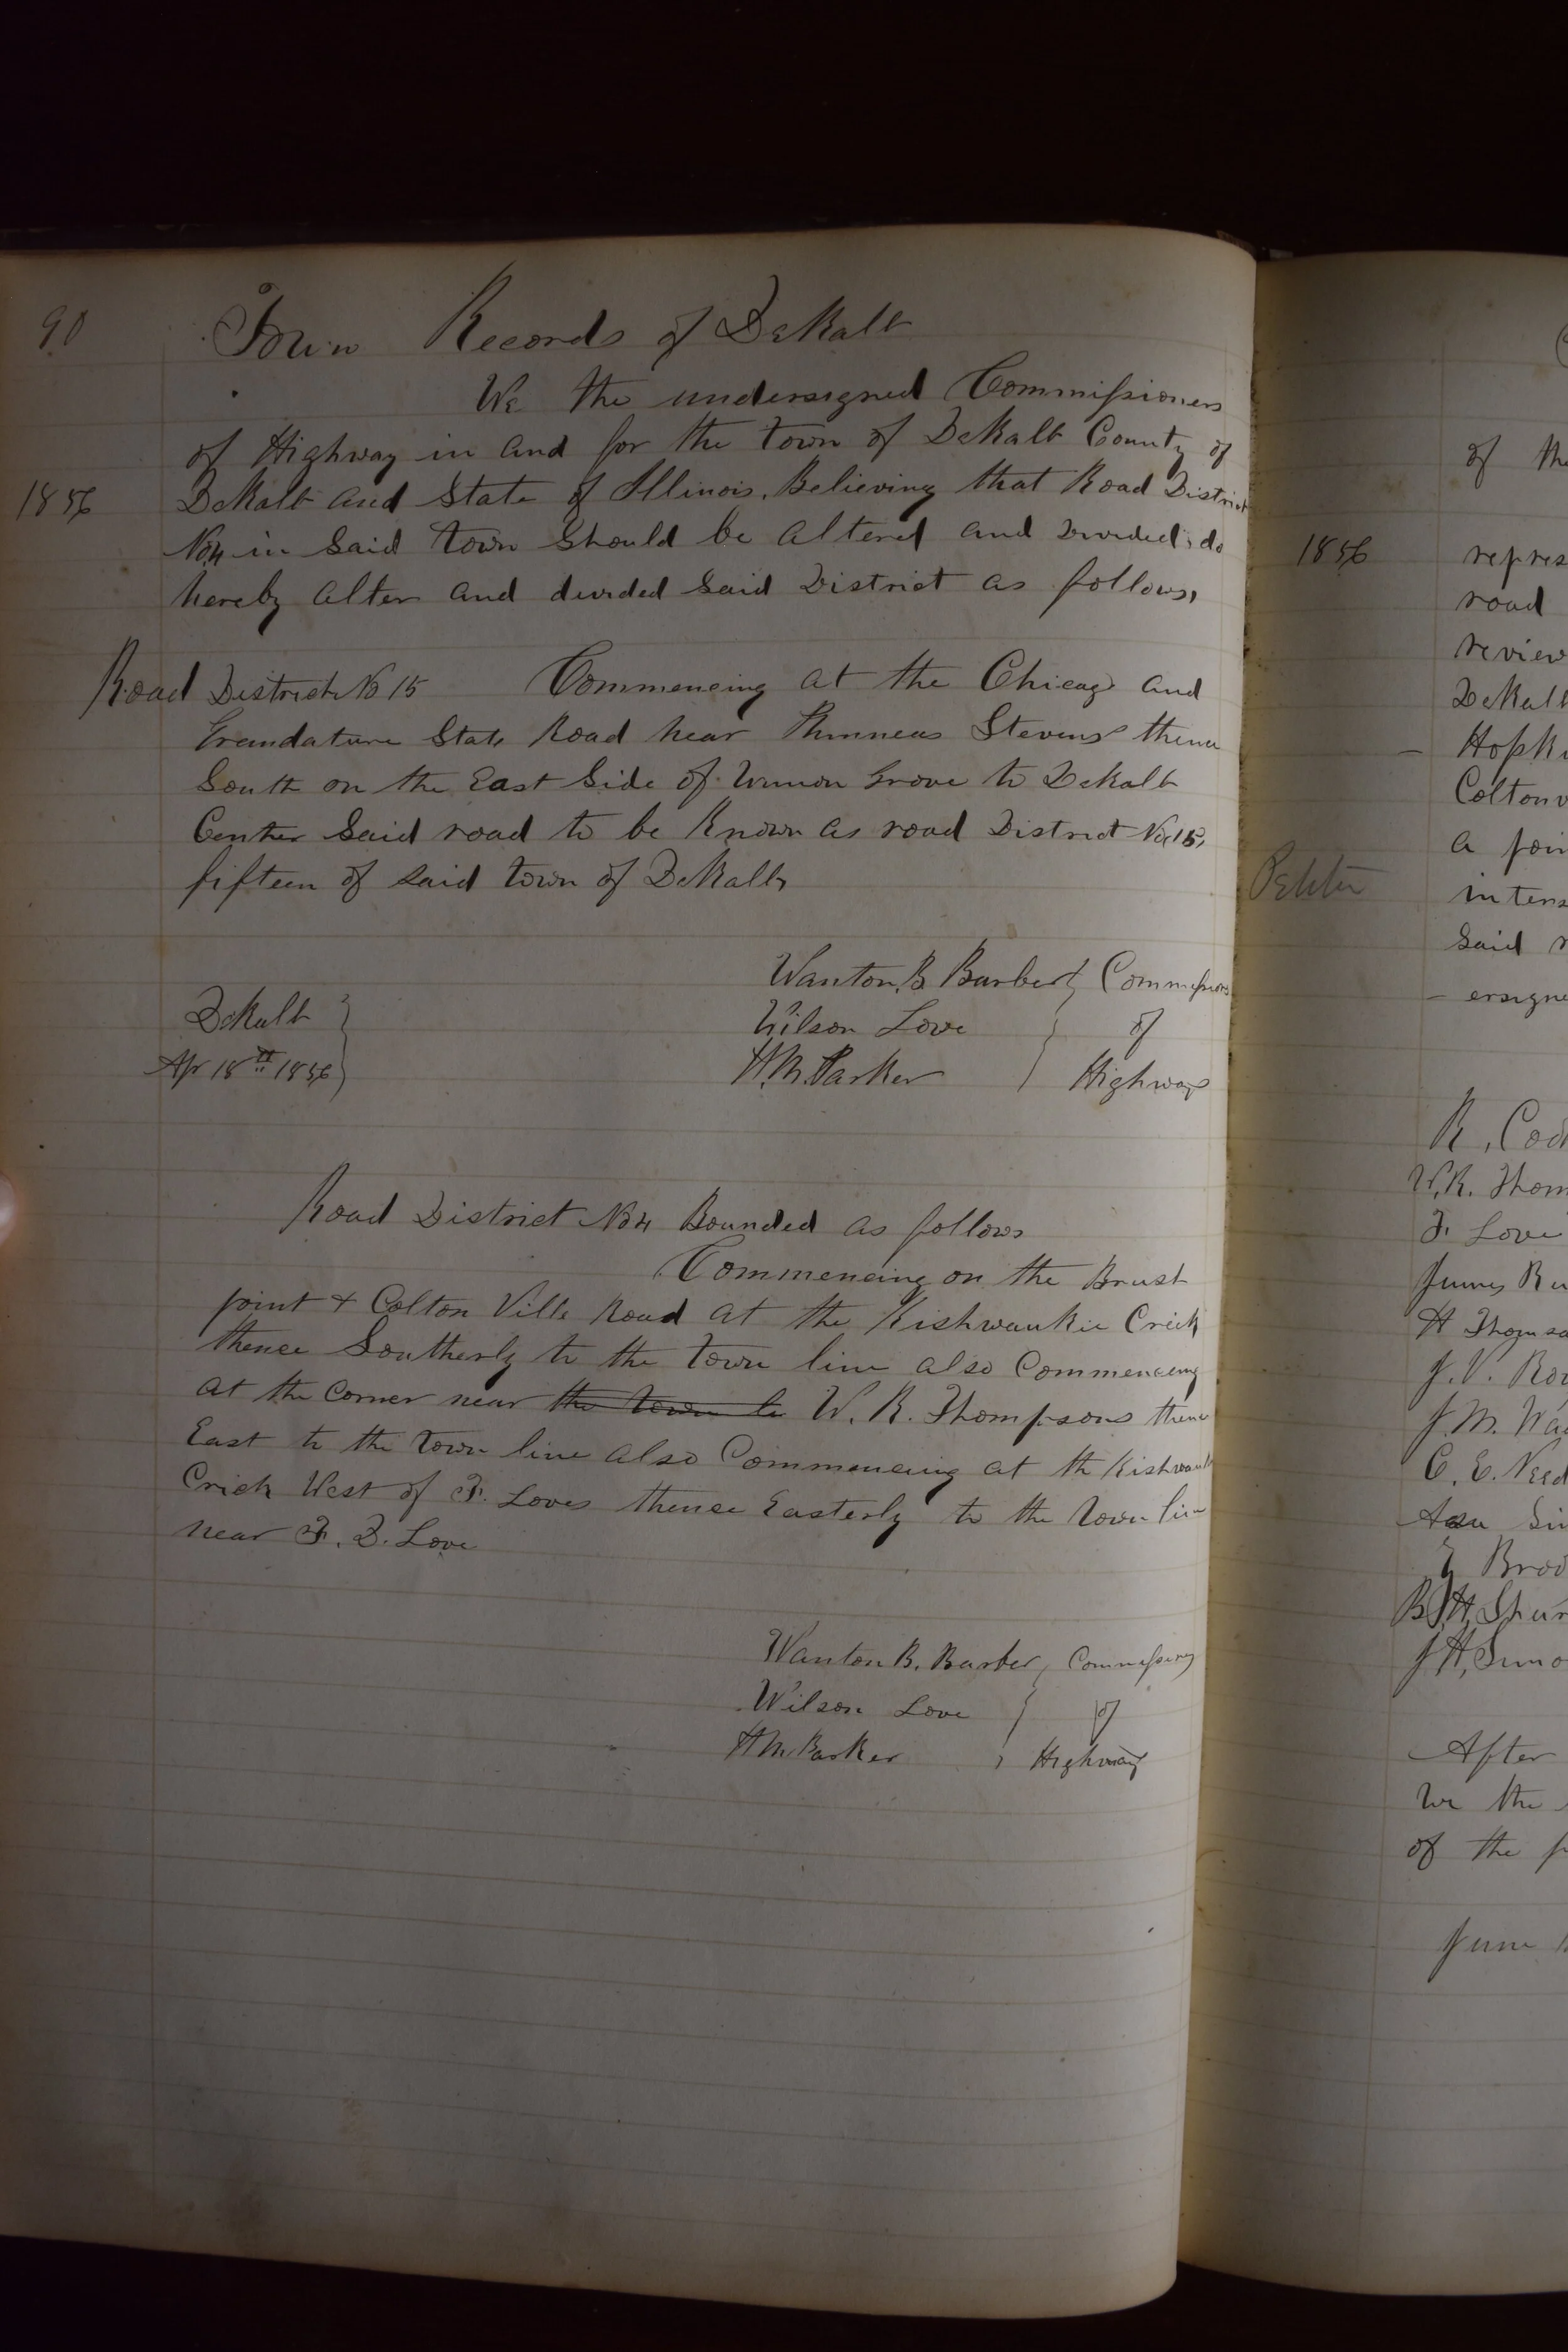 90
Town Records of DeKalb
We the undersigned Commissioners
of Highway in and for the town of DeKalb County of
1856
DeKalb and State of Illinois, Believing that Road District
No 4 in Said town Should be altered and divided, do
hereby alter and devided Said District as follows,
Road District No 15 Commencing at the Chicago and
State Road near Stevens thence
South on the East Side of Grove to Dekalb
Center Said road to be Known as road District No 15,
fifteen of said town of DeKalb,
Wanton B Barber Commissioners
Wilson Love of
H.M. Parker Highway
DeKalb
Apr 18th 1856
Road District No 4 Bounded as follows
Commencing on the Brust
point & Colton Ville Road at the Kishwaukie Crick
thence Southerly to the town line also Commencing
at the Corner near the town li W. R. Thompsons thence
East to the town line also Commencing at th Kishwauk
Crick West of F. Loves thence Easterly to the town line
near F. D. Love
Wanton B. Barber Commissioners
Wilson Love of
H M Parker Highway
of the
1856
repres
road
review
DeKalb
Hopki
Coltonv
a poin
intens
Said r
ersigne
R. Cod
W.R. Thom
F. Love
James Ru
H Thomso
J. V. Rov
J. M. Wa
C. E. Need
Asa Si
Broo
B H, Shur
J H, Simo
After
We the
of the p
June 1